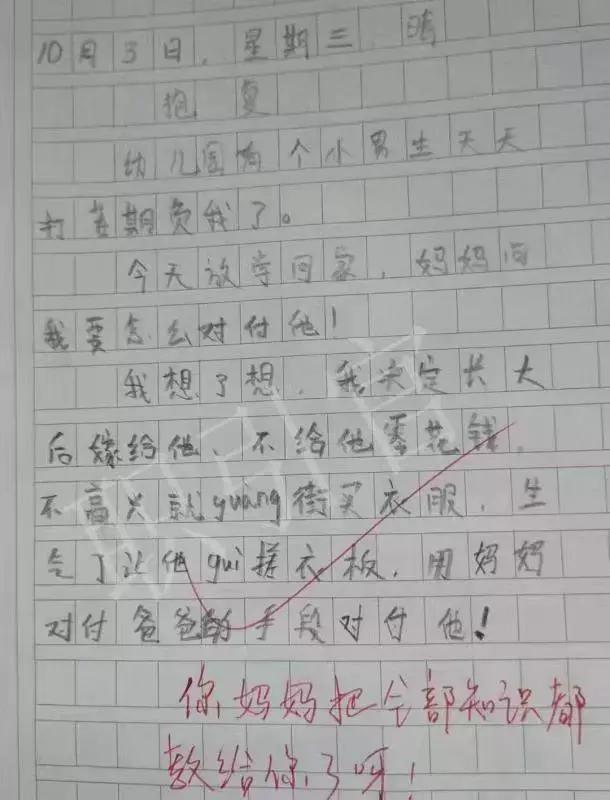 10月3日，星期三 晴
抱复
幼儿园有个小男生天天
打老期负我了。
今天放学回家，妈妈问
我要怎么对付他！
我想了想，我决定长大
后嫁给他、不给他零花钱，
不高兴就guàng街买衣服，生
气了让他guì搓衣板，用妈妈
对付爸爸的手段对付他！
你妈妈把全部知识都
教给你了呀！